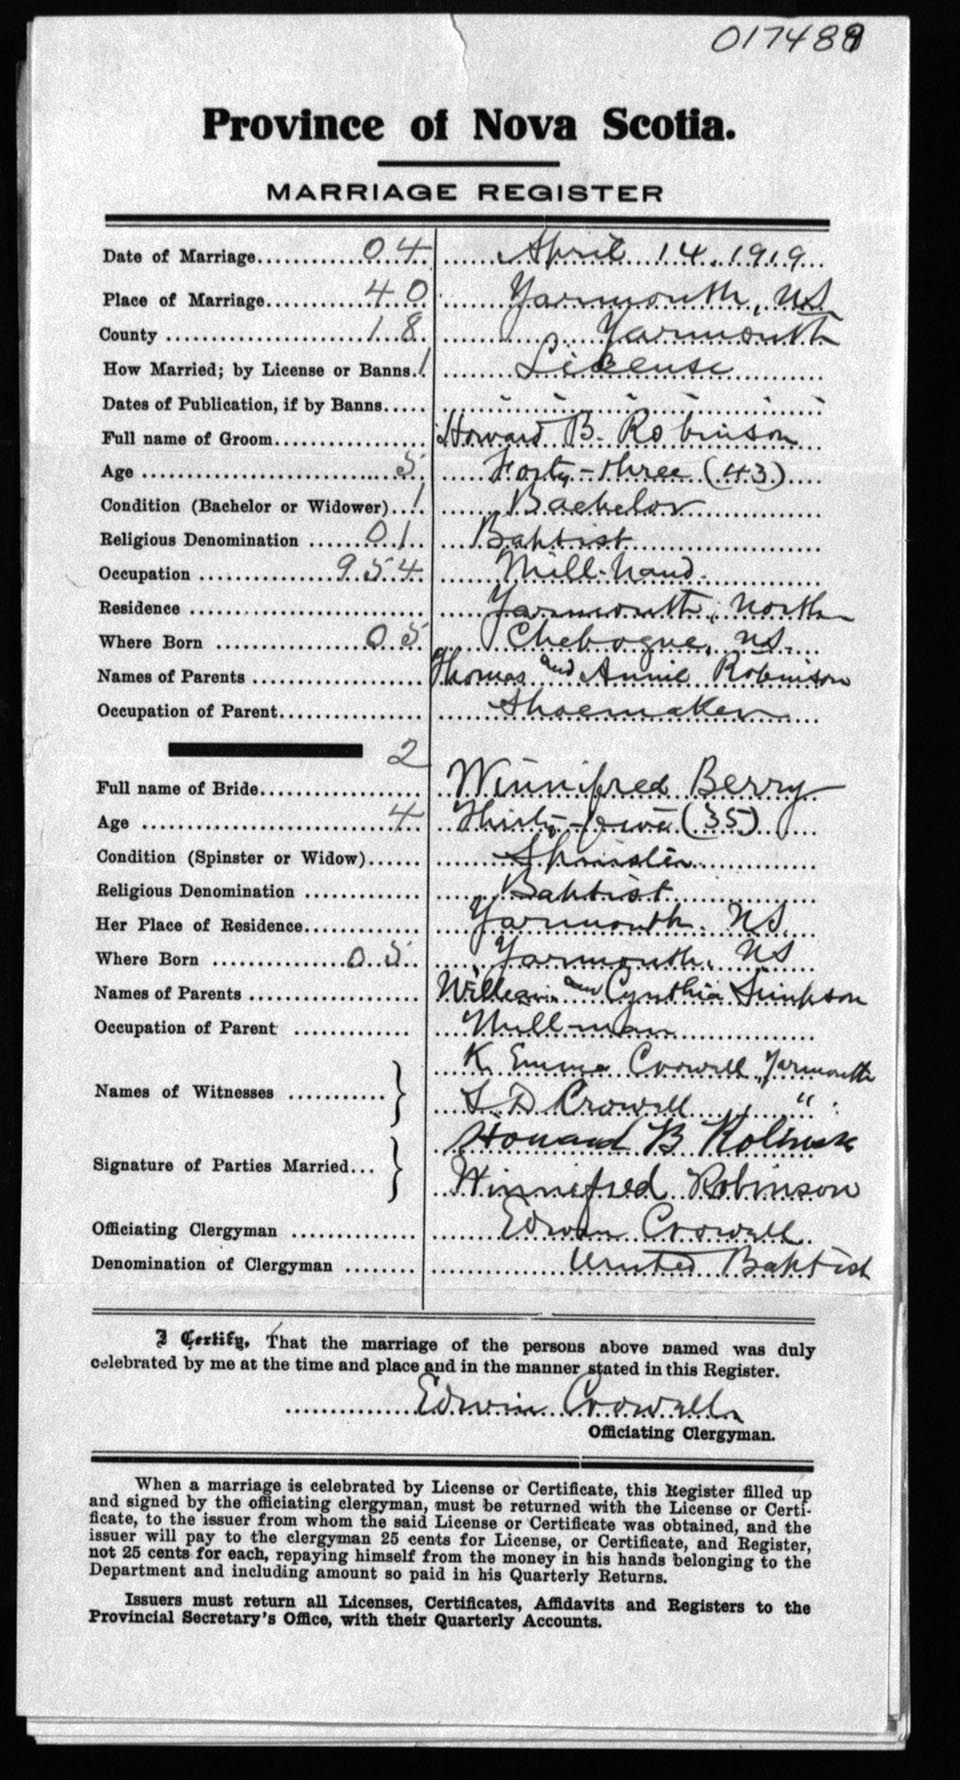 017489
Province of Nova Scotia.
MARRIAGE REGISTER
Date of Marriage 04 April 14, 1919
Place of Marriage 40 Yarmouth, NS
County 18 Yarmouth
How Married; by License or Banns 1 License
Dates of Publication, if by Banns
Full name of Groom Howard B. Robinson
Age 5 Forty-three (43)
Condition (Bachelor or Widower) 1 Bachelor
Religious Denomination 01 Baptist
Occupation 954 Mill-hand
Residence Yarmouth, North
Where Born 05 Chebogue, NS.
Names of Parents Thomas and Annie Robinson
Occupation of Parent Shoemaker
2
Full name of Bride Winnifred Berry
Age 4 Thirty-five (35)
Condition (Spinster or Widow) Spinster
Religious Denomination Baptist
Her Place of Residence Yarmouth, NS.
Where Born 05 Yarmouth, NS
Names of Parents William and Cynthia Simpson
Occupation of Parent Mill-man
K. Emma Crowell, Yarmouth
Names of Witnesses
S D Crowell "
Howard B Robinson
Signature of Parties Married
Winnifred Robinson
Officiating Clergyman Edwin Crowell
Denomination of Clergyman United Baptist
I Certify, That the marriage of the persons above named was duly
celebrated by me at the time and place and in the manner stated in this Register.
Edwin Crowell
Officiating Clergyman.
When a marriage is celebrated by License or Certificate, this Register filled up
and signed by the officiating clergyman, must be returned with the License or Certi-
ficate, to the issuer from whom the said License or Certificate was obtained, and the
issuer will pay to the clergyman 25 cents for License, or Certificate, and Register,
not 25 cents for each, repaying himself from the money in his hands belonging to the
Department and including amount so paid in his Quarterly Returns.
Issuers must return all Licenses, Certificates, Affidavits and Registers to the
Provincial Secretary's Office, with their Quarterly Accounts.